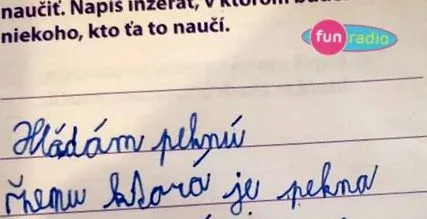 naučiť. Napíš inzerát, v ktorom bude
niekoho, kto ťa to naučí.
fun radio
Hládám peknú
řhemu ktorá je pekna